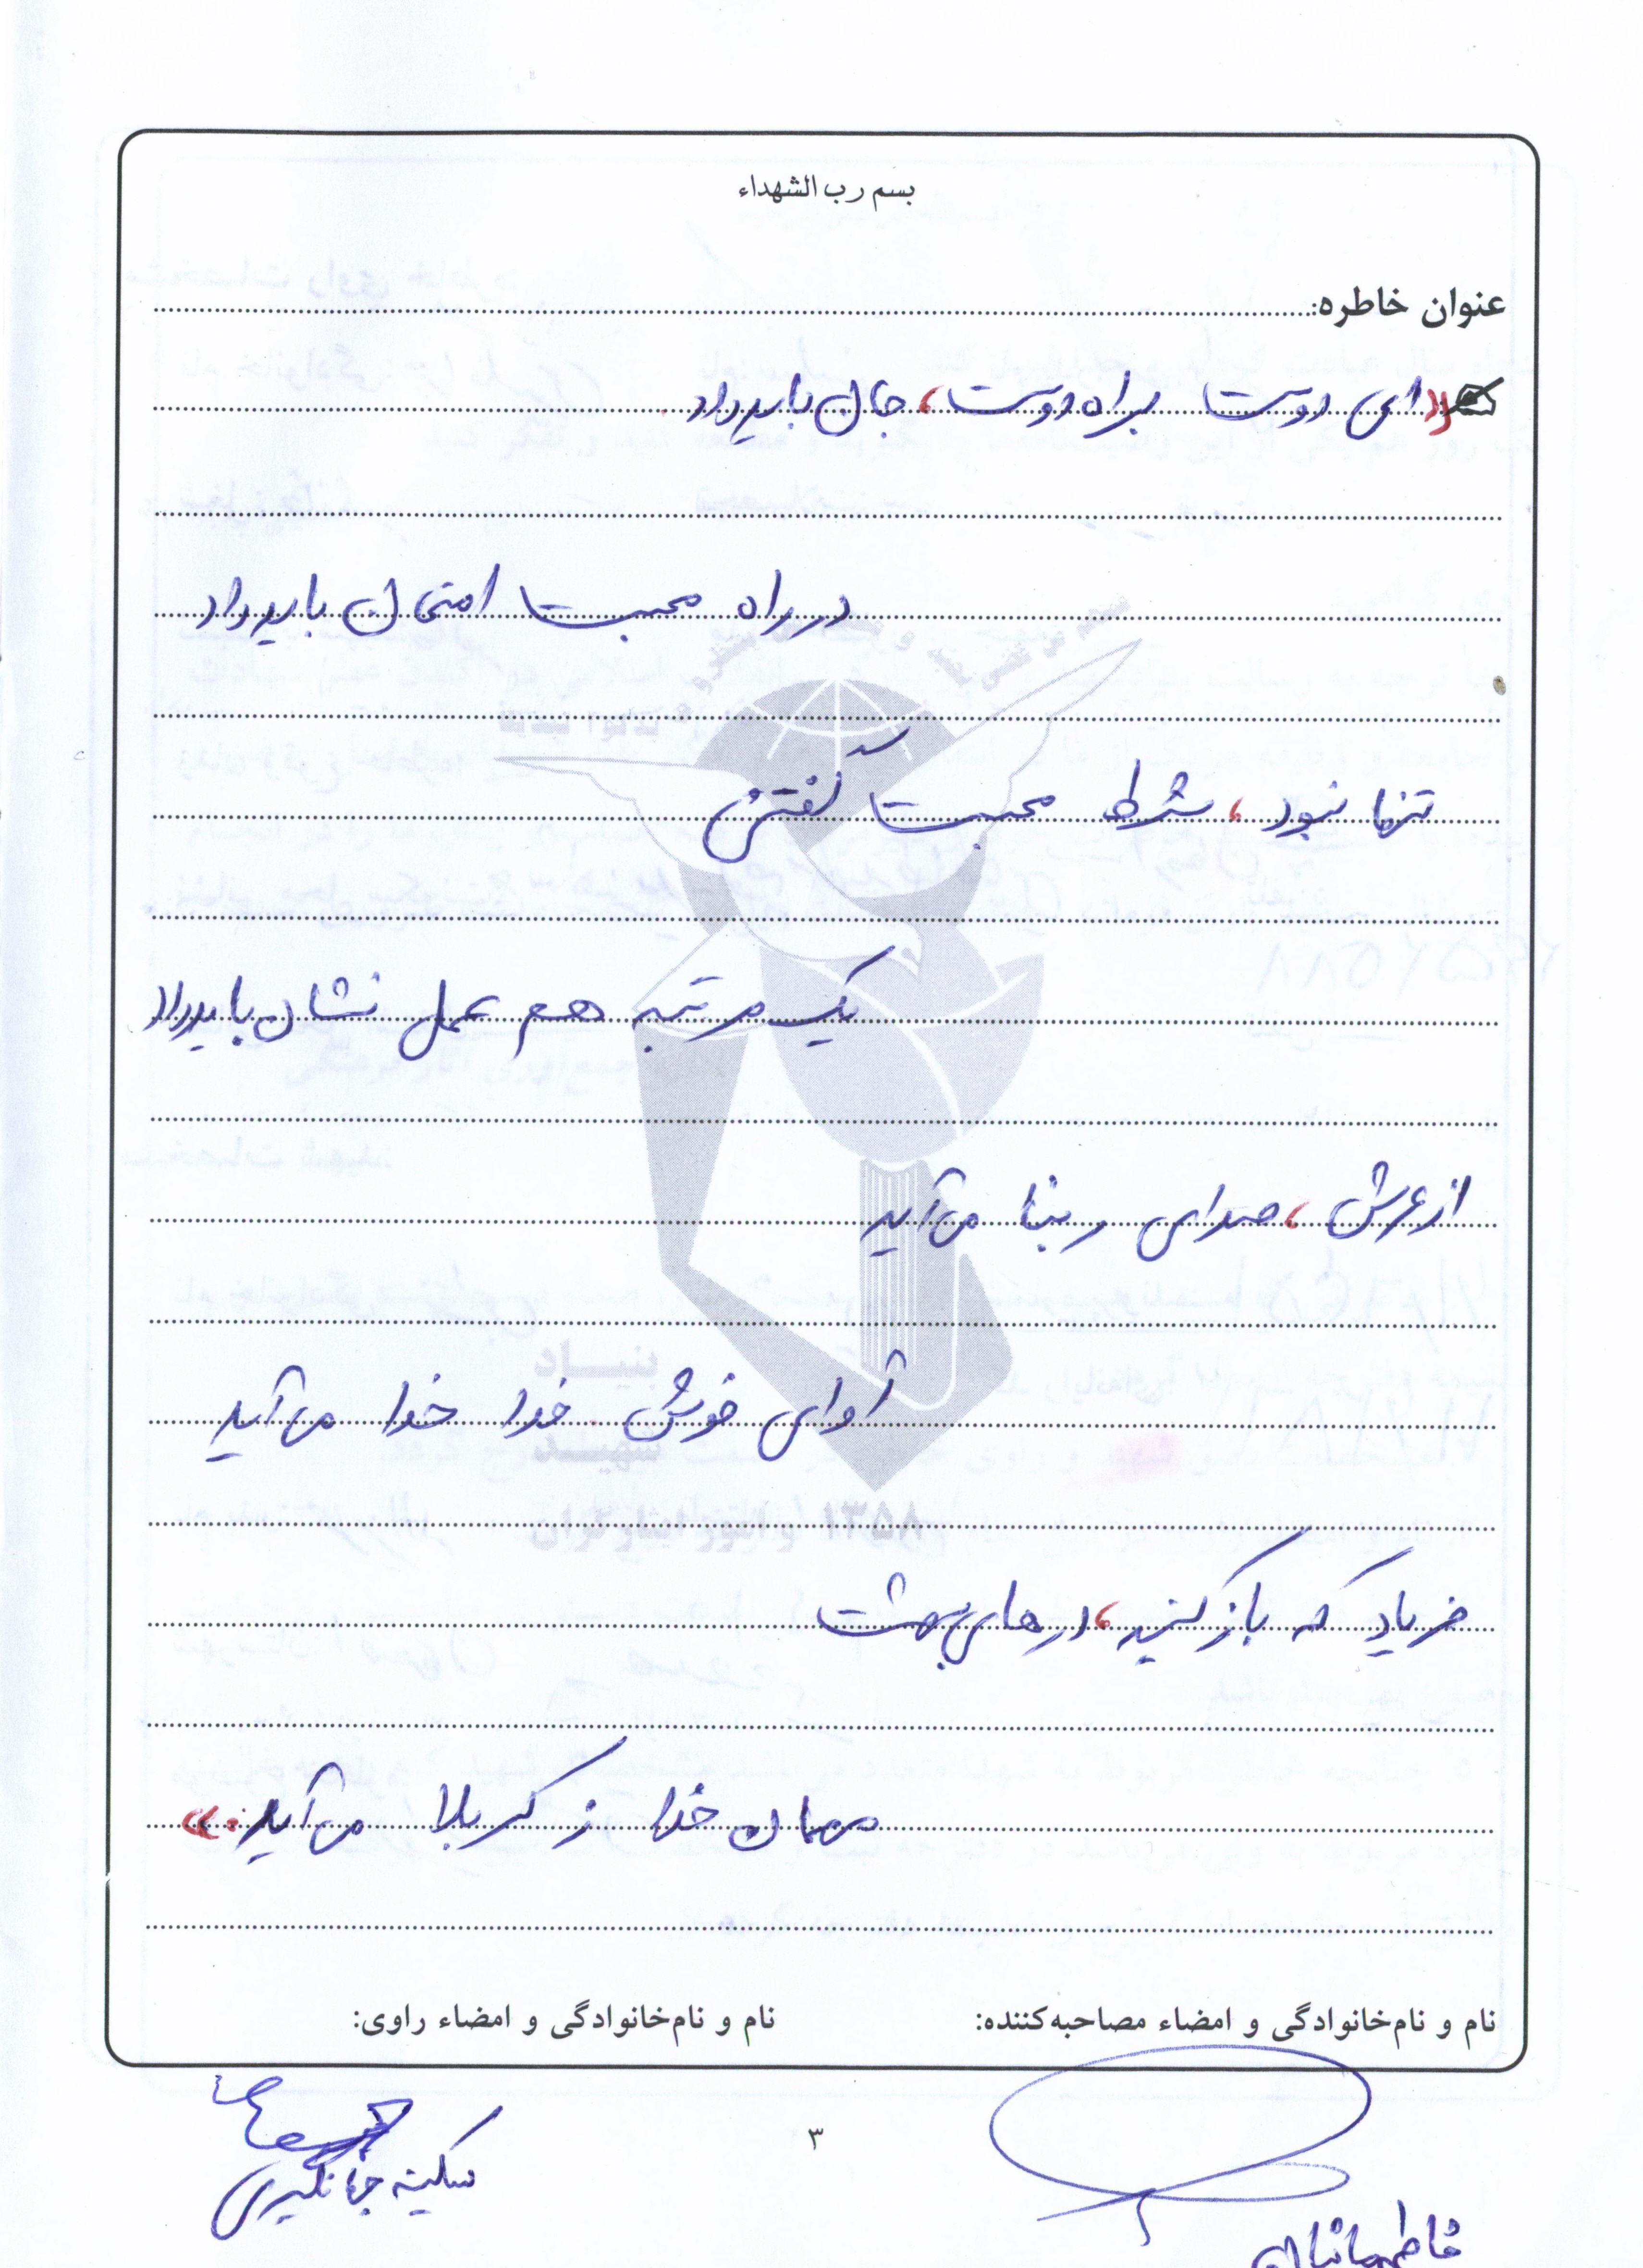 بسم رب الشهداء
عنوان خاطره:
«ای دوست براه دوست، جان باید داد
در راه محبت امتحان باید داد
تنها نبود، شرط محبت گفتن
یک مرتبه هم عمل نشان باید داد
از عرش، صدای ربنا می‌آید
آوای خوش خدا خدا می‌آید
فریاد که باز کنید، درهای بهشت
مهمان خدا ز کربلا می‌آید.»
نام و نام‌خانوادگی و امضاء مصاحبه‌کننده:
نام و نام‌خانوادگی و امضاء راوی:
۳
سکینه جهانگیری
فاطمه
بنیاد
شهید
۱۳۵۸ و امور ایثارگران